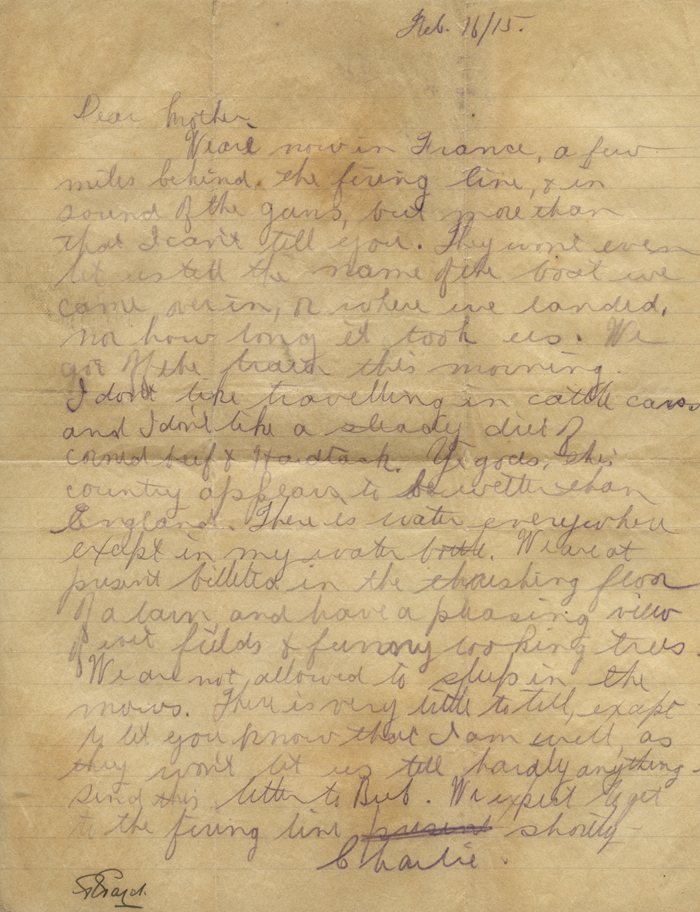 Feb. 16/15.
Dear Mother
We are now in France, a few
miles behind the firing line, & in
sound of the guns, but more than
that I can't tell you. They wont even
let us tell the name of the boat we
came over in, or where we landed,
nor how long it took us. We
got off the train this morning.
I dont like travelling in cattle cars
and I dont like a steady diet of
corned beef & Hardtack. Ye gods, this
country appears to be wetter than
England. There is water everywhere
except in my water bottle. We are at
present billeted in the threshing floor
of a barn, and have a pleasing view
of wet fields & funny looking trees.
We are not allowed to sleep in the
mows. There is very little to tell, except
to let you know that I am well, as
they won't let us tell hardly anything -
send this letter to Bub. We expect to get
to the firing line shortly -
Charlie.